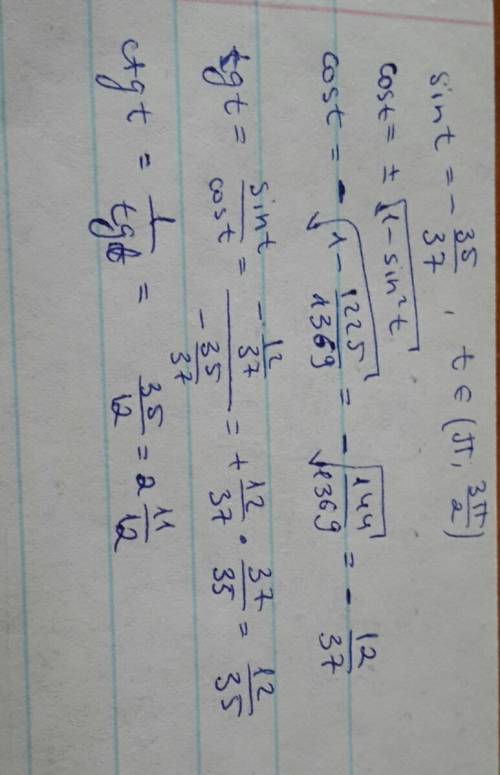 sin t = - 35/37 , t ∈ (π; 3π/2)
cos t = ± √(1 - sin²t)
cos t = - √(1 - 1225/1369) = - √(144/1369) = - 12/37
tg t = sin t / cos t = (- 12/37) / (- 35/37) = + 12/37 · 37/35 = 12/35
ctg t = 1 / tg t = 35/12 = 2 11/12